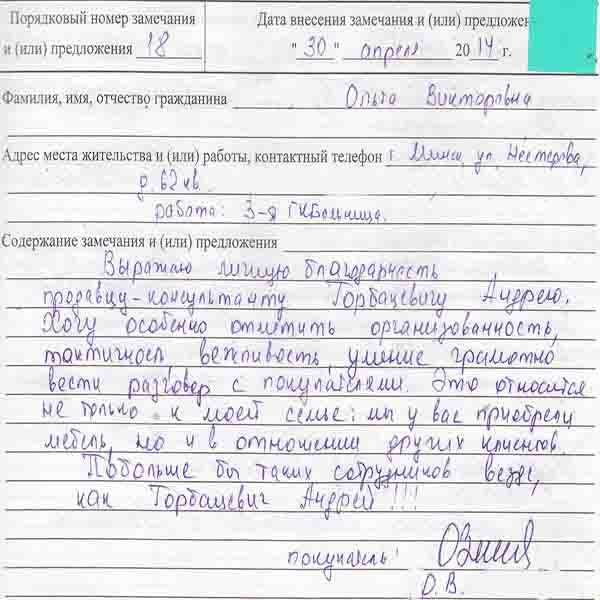 Порядковый номер замечания
и (или) предложения 18
Дата внесения замечания и (или) предложен
"30" апреля 2014 г.
Фамилия, имя, отчество гражданина Ольга Викторовна
Адрес места жительства и (или) работы, контактный телефон г. Минск, ул. Нестерова,
д. 62 кв.
работа: 3-я ГКБольница.
Содержание замечания и (или) предложения
Выражаю личную благодарность
продавцу-консультанту Горбацевичу Андрею.
Хочу особенно отметить организованность,
тактичность вежливость, умение грамотно
вести разговор с покупателями. Это относится
не только к моей семье: мы у вас приобрели
мебель, но и в отношении других клиентов.
Побольше бы таких сотрудников везде,
как Горбацевич Андрей!!!
покупатель:
О.В.